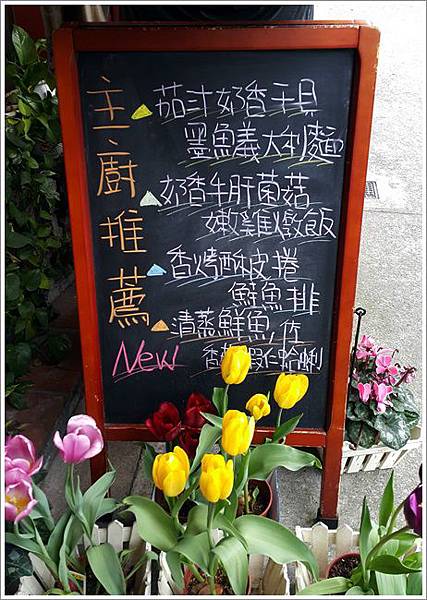 主廚推薦
茄汁奶香干貝
墨魚義大利麵
奶香牛肝菌菇
嫩雞燉飯
香烤酥皮捲
鮭魚排
清蒸鮮魚,佐
香 蝦仁蛤蜊
New